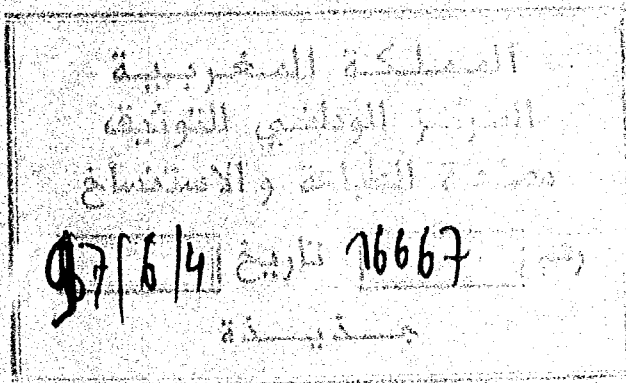 المملكة المغربية
المركز الوطني للتوثيق
مصلحة الطباعة والاستنساخ
رقم 16667 تاريخ 97/6/4